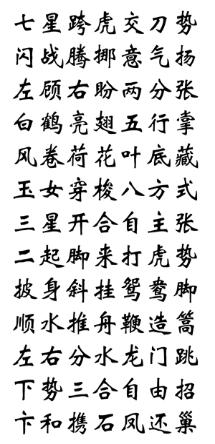 七星跨虎交刀势
闪战腾挪意气扬
左顾右盼两分张
白鹤亮翅五行掌
风卷荷花叶底藏
玉女穿梭八方式
三星开合自主张
二起脚来打虎势
披身斜挂鸳鸯脚
顺水推舟鞭造篙
左右分水龙门跳
下势三合自由招
卞和携石凤还巢